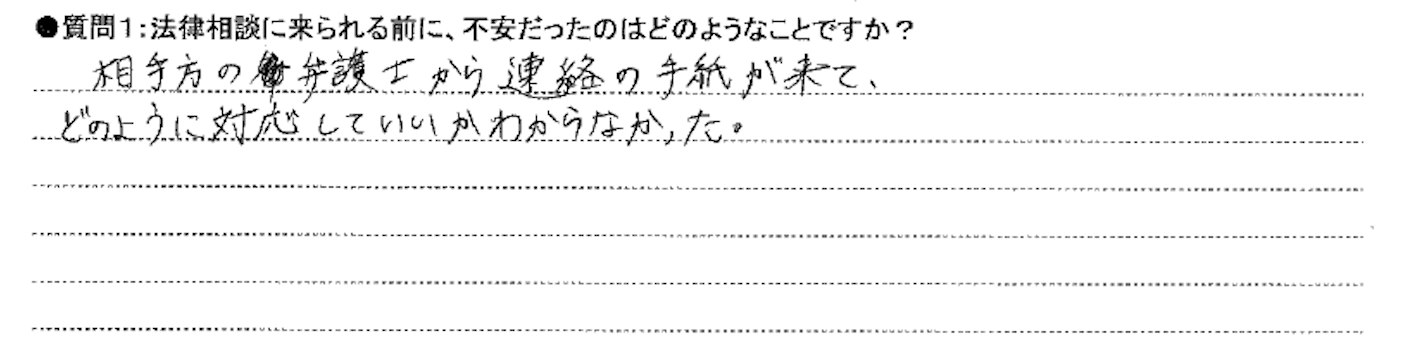 ●質問1：法律相談に来られる前に、不安だったのはどのようなことですか？
相手方の弁護士から連絡の手紙が来て、
どのように対応していいかわからなかった。